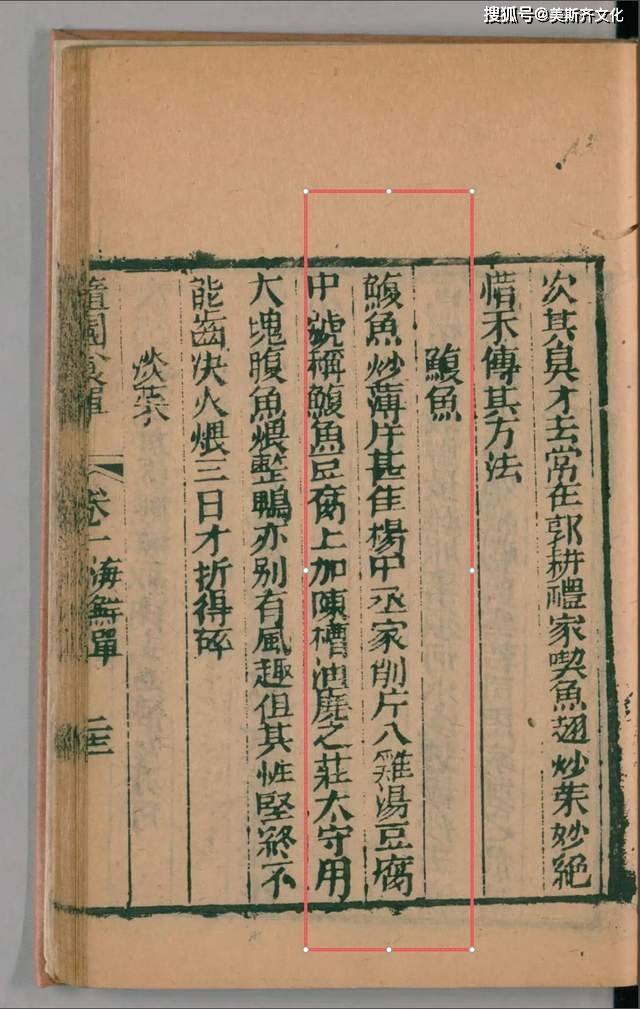 搜狐号@美斯齐文化
次其臭才去常在郭耕禮家喫魚翅炒菜妙絕
惜未傳其方法
鰒魚
鰒魚炒薄片甚佳楊中丞家削片入雞湯豆腐
中號稱鰒魚豆腐上加陳糟油澆之莊太守用
大塊鰒魚煨整鴨亦别有風趣但其性堅終不
能齒决火煨三日才折得碎
淡菜
隨園食單 卷一 海鮮單